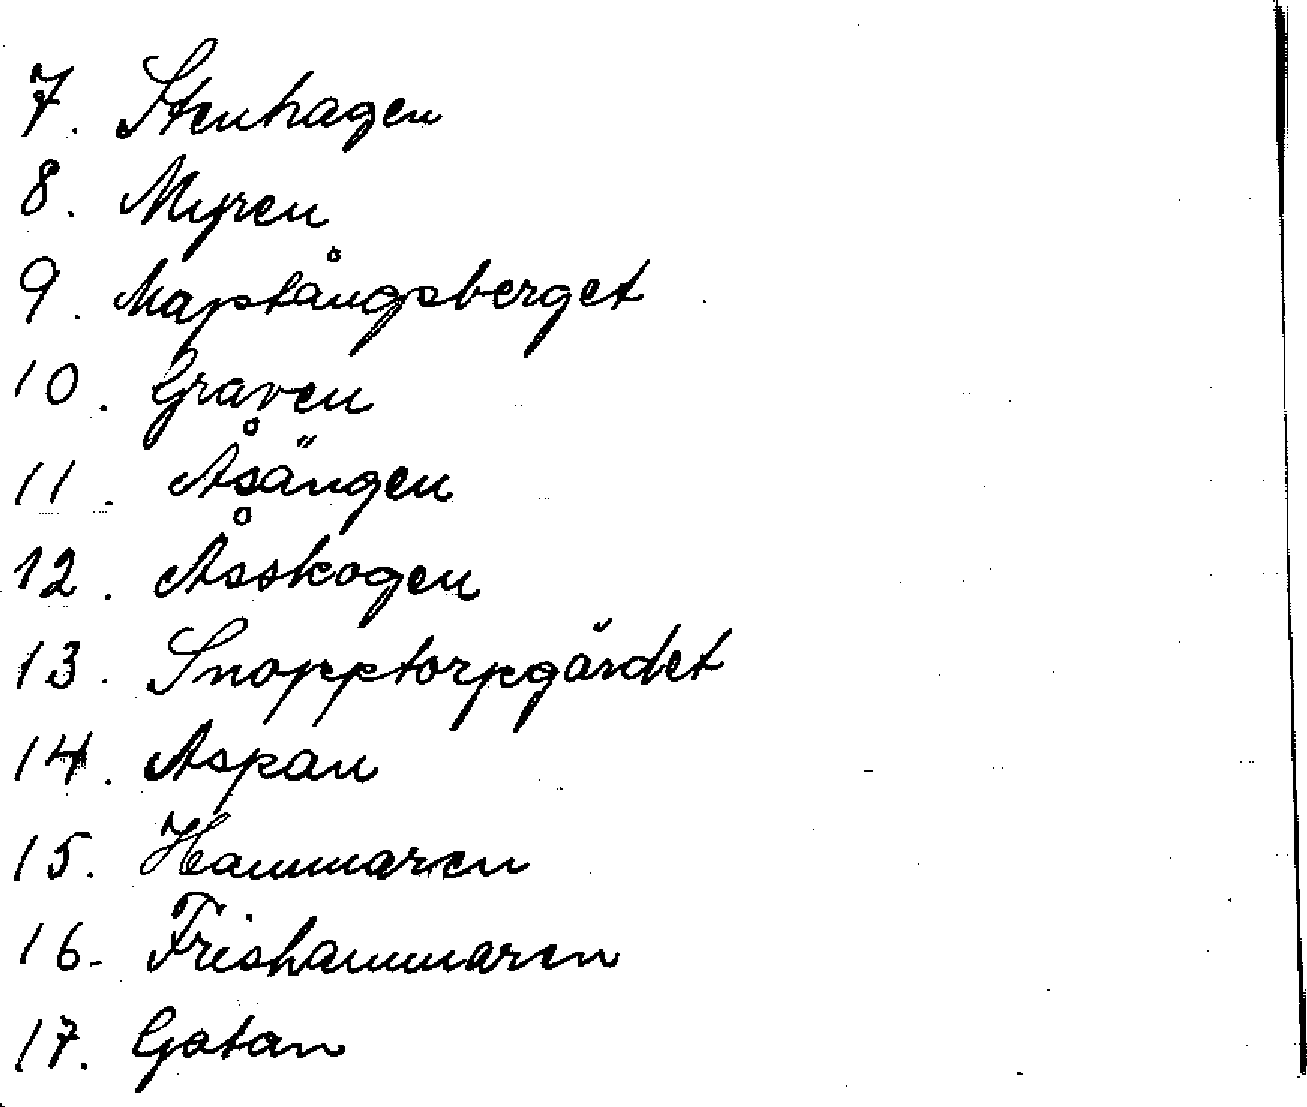 7. Stenhagen
8. Myren
9. Mapstångsberget
10. Graven
11. Åsängen
12. Åsskogen
13. Snopptorpgärdet
14. Aspan
15. Hammaren
16. Frishammaren
17. Gatan